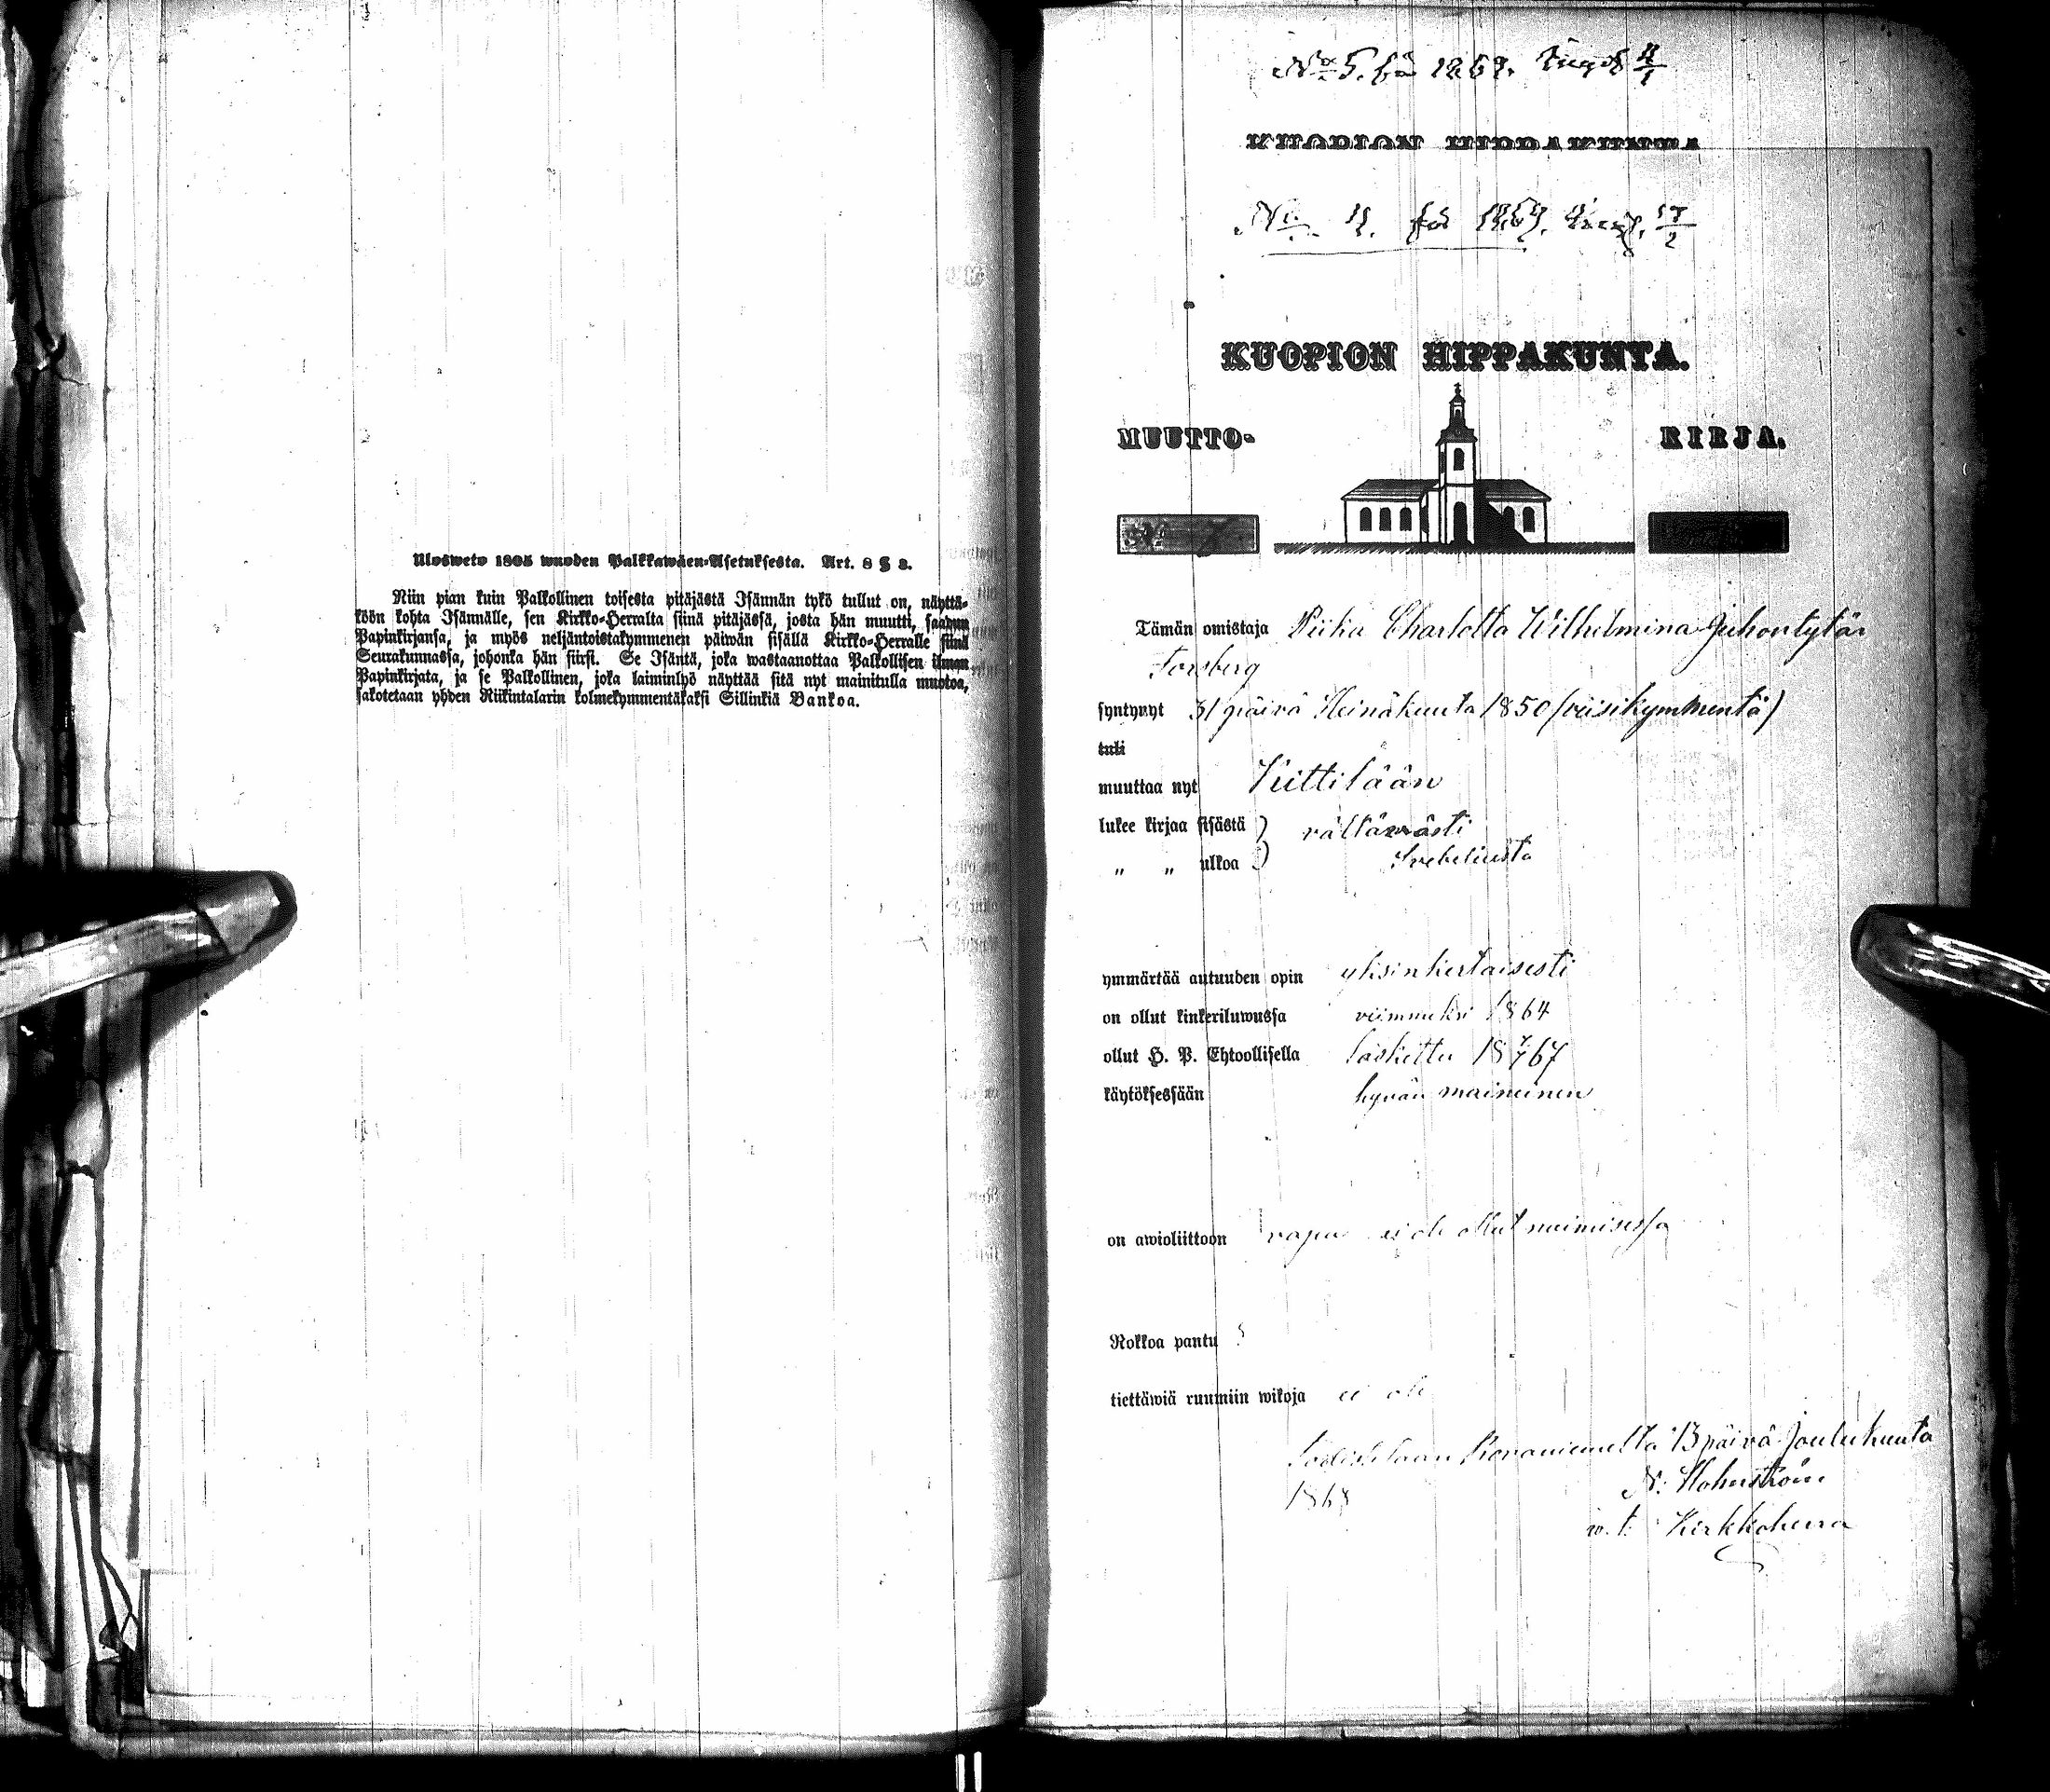 Ulosweto 1805 wuoden Palkkawäen-Asetuksesta. Art. 8 § 3.
Niin pian kuin Palkollinen toisesta pitäjästä Isännän tykö tullut on, näyttä-
köön kohta Isännälle, sen Kirkko-Herralta siinä pitäjässä, josta hän muutti, saadun
Papinkirjansa, ja myös neljäntoistakymmenen päiwän sisällä Kirkko-Herralle siinä
Seurakunnassa, johonka hän siirsi. Se Isäntä, joka wastaanottaa Palkollisen ilman
Papinkirjata, ja se Palkollinen, joka laiminlyö näyttää sitä nyt mainitulla muotoa,
sakotetaan yhden Riikintalarin kolmekymmentäkaksi Sillinkiä Bankoa.
No 5. för 1869.
KUOPION HIPPAKUNTA
No 11. för 1869. 17/2
KUOPION HIPPAKUNTA.
MUUTTO- KIRJA.
Tämän omistaja Piika Charlotta Wilhelmina Juhontytär
Forsberg
syntynyt 31 päivä Heinäkuuta 1850 (viisikymmentä)
tuli
muuttaa nyt Kittilään
lukee kirjaa sisästä ) välttävästi
" " ulkoa ) Svebeliusta
ymmärtää autuuden opin yksinkertaisesti
on ollut kinkeriluwussa viimmeksi 1864
ollut H. P. Ehtoollisella laskettu 18 7/7 67
käytöksessään hyvän maineinen
on awioliittoon vapa ei ole ollut naimisessa
Rokkoa pantu
tiettäwiä ruumiin wikoja ei ole
Todistetaan Rovaniemellä 13 päivä Joulukuuta
1868 N:
w. t. Kirkkoherra